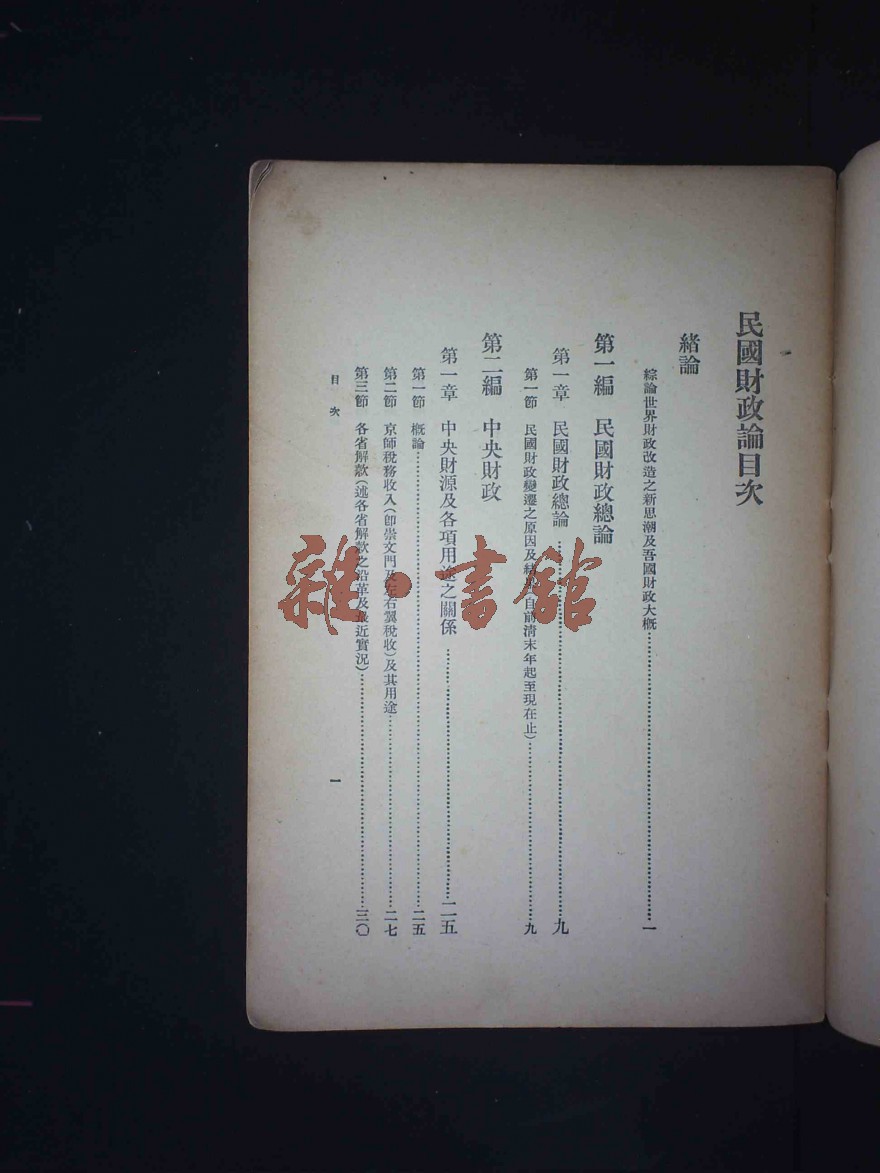 民國財政論目次
緒論
綜論世界財政改造之新思潮及吾國財政大概……一
第一編　民國財政總論
第一章　民國財政總論……九
第一節　民國財政變遷之原因及結自前淸末年起至現在止)……九
第二編　中央財政
第一章　中央財源及各項用途之關係……二五
第一節　槪論……二五
第二節　京師稅務收入(卽崇文門及左右翼稅收)及其用途……二七
第三節　各省解款(述各省解款之沿革及最近實況)……三〇
目次
一
雜·書館